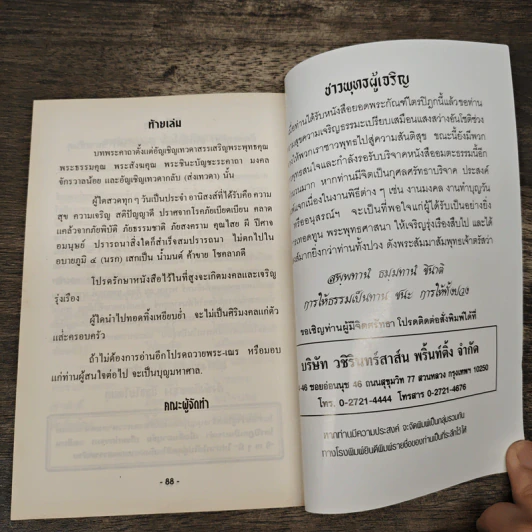 ท้ายเล่ม
บทพระคาถาตั้งแต่อัญเชิญเทวดาสรรเสริญพระพุทธคุณ
พระธรรมคุณ พระสังฆคุณ พระชินะบัญชะระคาถา มงคล
จักรวาลน้อย และอัญเชิญเทวดากลับ (ส่งเทวดา) นั้น
ผู้ใดสวดทุก ๆ วันเป็นประจำ อานิสงส์ที่ได้รับคือ ความ
สุข ความเจริญ สติปัญญาดี ปราศจากโรคภัยเบียดเบียน คลาด
แคล้วจากภัยพิบัติ ภัยธรรมชาติ ภัยสงคราม คุณไสย ผี ปีศาจ
อมนุษย์ ปรารถนาสิ่งใดก็สำเร็จสมปรารถนา ไม่ตกไปใน
อบายภูมิ ๔ (นรก) เสกเป็น น้ำมนต์ ค้าขาย โชคลาภดี
โปรดรักษาหนังสือไว้ในที่สูงจะเกิดมงคลและเจริญ
รุ่งเรือง
ผู้ใดนำไปทอดทิ้งเหยียบย่ำ จะไม่เป็นศิริมงคลแก่ตัว
และครอบครัว
ถ้าไม่ต้องการอ่านอีกโปรดถวายพระ-เณร หรือมอบ
แก่ท่านผู้สนใจต่อไป จะเป็นบุญมหาศาล.
คณะผู้จัดทำ
- 88 -
ชาวพุทธผู้เจริญ
ท่านได้รับหนังสือยอดพระกัณฑ์ไตรปิฎกนี้แล้วขอท่าน
สุขความเจริญธรรมะเปรียบเสมือนแสงสว่างอันโชติช่วง
ให้พวกเราชาวพุทธไปสู่ความสันติสุข ขณะนี้ยังมีพวก
พุทธสนใจและกำลังรอรับบริจาคหนังสืออมตะธรรมนี้อีก
มาก หากท่านมีจิตเป็นกุศลศรัทธาบริจาค ประสงค์
แจกเนื่องในงานพิธีต่าง ๆ เช่น งานมงคล งานทำบุญวัน
หรืออนุสรณ์ฯ จะเป็นที่พอใจแก่ผู้ได้รับเป็นอย่างยิ่ง
การทดแทน พระพุทธศาสนา ให้เจริญรุ่งเรืองสืบไป และได้
มากยิ่งกว่าท่านทั้งปวง ดังพระสัมมาสัมพุทธเจ้าตรัสว่า
สพฺพทานํ ธมฺมทานํ ชินาติ
การให้ธรรมเป็นทาน ชนะ การให้ทั้งปวง
ขอเชิญท่านผู้มีจิตศรัทธา โปรดติดต่อสั่งพิมพ์ได้ที่
บริษัท วชิรินทร์สาส์น พริ้นท์ติ้ง จำกัด
-46 ซอยอ่อนนุช 46 ถนนสุขุมวิท 77 สวนหลวง กรุงเทพฯ 10250
โทร. 0-2721-4444 โทรสาร 0-2721-4676
หากท่านมีความประสงค์ จะจัดพิมพ์เป็นกลุ่มรวมกัน
ทางโรงพิมพ์ยินดีพิมพ์รายชื่อของท่านเป็นที่ระลึกไว้ได้